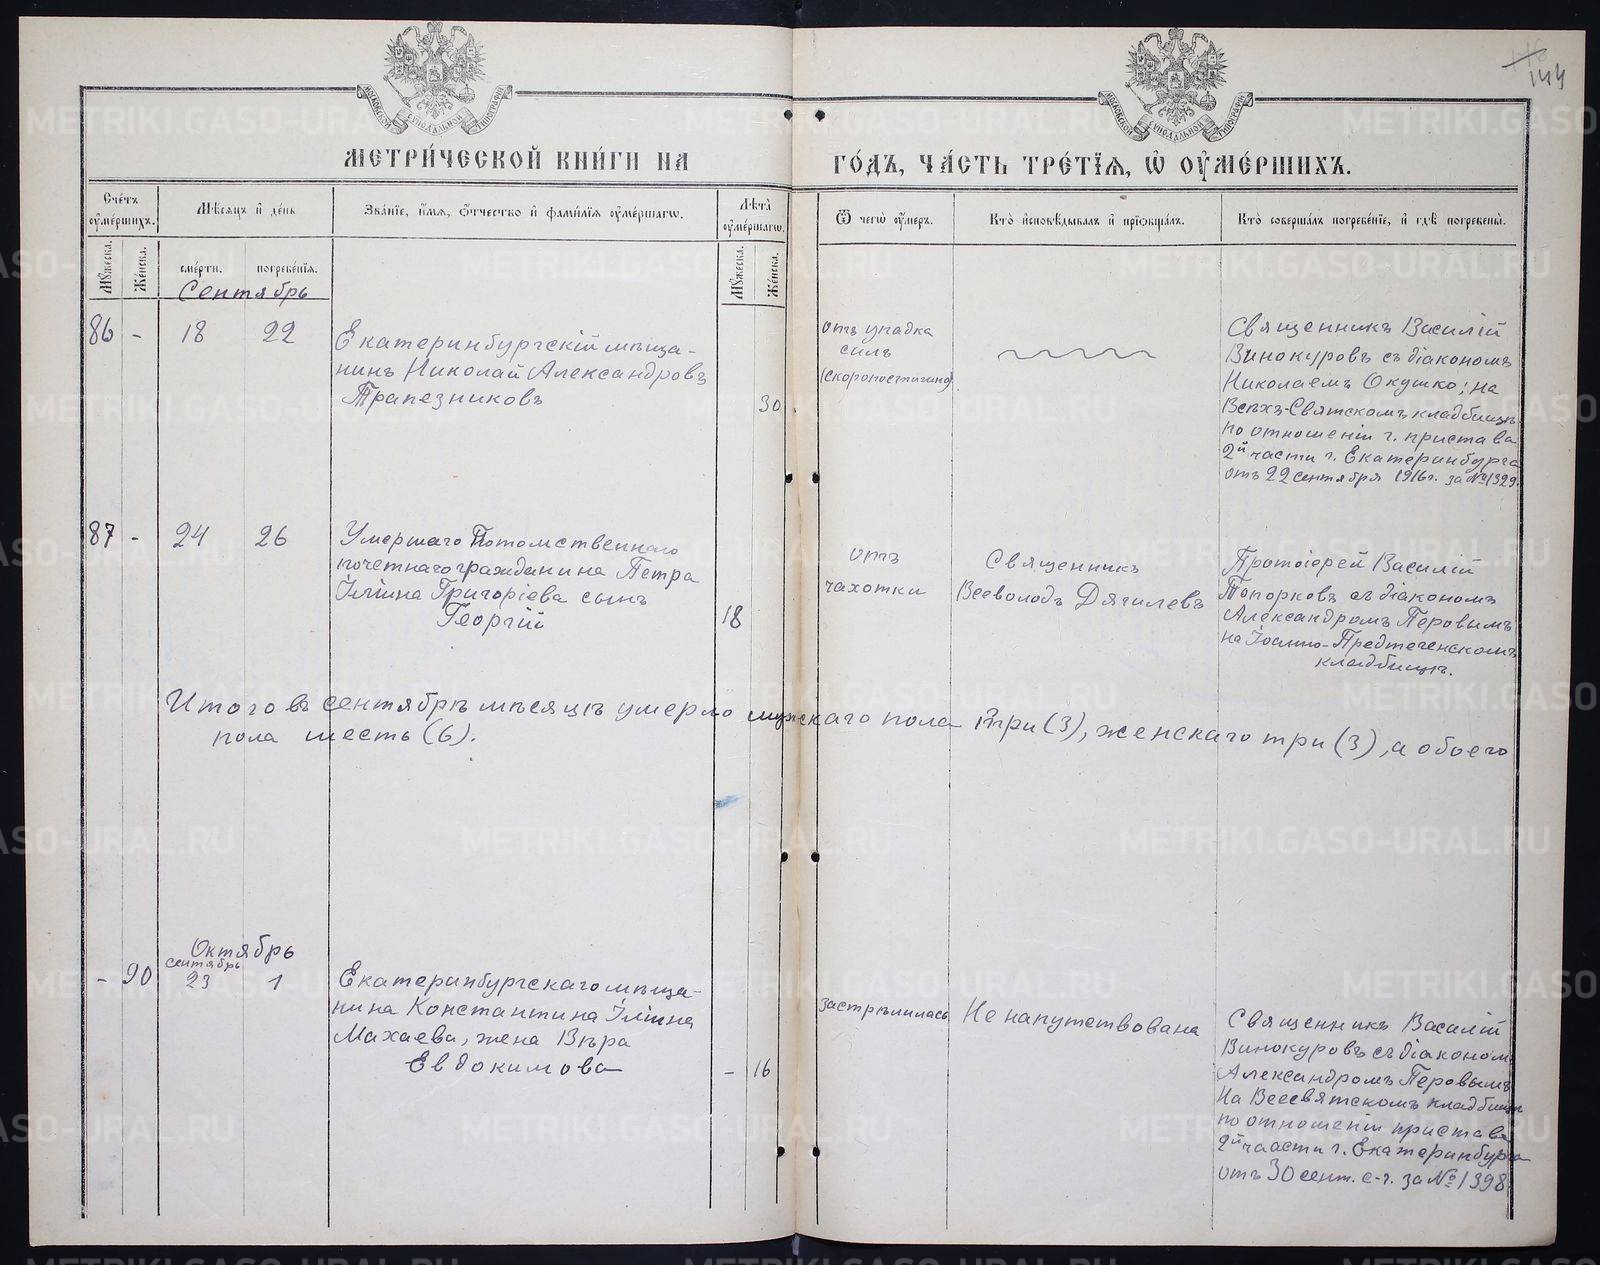 144
МОСКОВСКОЙ СѴНОДАЛЬНОЙ ТИПОГРАФІИ
МОСКОВСКОЙ СѴНОДАЛЬНОЙ ТИПОГРАФІИ
МЕТРИ́ЧЕСКОЙ КНИ́ГИ НА
ГО́ДЪ, ЧА́СТЬ ТРЕ́ТІѦ, Ѽ ОУ҆МЕ́РШИХЪ.
Сче́тъ оу҆ме́ршихъ.
Мѣ́сяцъ и҆ де́нь
Зва́нїе, и҆́мѧ, ѻ҆́тчество и҆ фами́лїѧ оу҆ме́ршагѡ.
Лѣ́та оу҆ме́ршагѡ.
Ѿ чегѡ̀ оу҆́меръ.
Кто̀ и҆сповѣ́дывалъ и҆ прїѡбща́лъ.
Кто̀ соверша́лъ погребе́нїе, и҆ гдѣ̀ погребены̀.
Му́жеска.
Же́нска.
сме́рти.
погребе́нїѧ.
Му́жеска.
Же́нска.
Сентябрь
86 - 18 22
Екатеринбургскій мѣща-
нинъ Николай Александровъ
Трапезниковъ
30
отъ упадка
силъ
(скоропостижно)
Священникъ Василій
Винокуровъ съ діакономъ
Николаемъ Окушко; на
Всѣхъ-Святскомъ кладбищѣ
по отношенію г. пристава
2й части г. Екатеринбурга
отъ 22 сентября 1916 г. за №1329.
87 - 24 26
Умершаго Потомственнаго
почетнаго гражданина Петра
Ильина Григоріева сынъ
Георгій
18
отъ
чахотки
Священникъ
Всеволодъ Дягилевъ
Протоіерей Василій
Топорковъ съ діакономъ
Александромъ Перовымъ
на Іоанно-Предтеченскомъ
кладбищѣ.
Итого въ сентябрѣ мѣсяцѣ умерло мужскаго пола три (3), женскаго три (3), а обоего
пола шесть (6).
Октябрь
сентябрь
- 90 23 1
Екатеринбургскаго мѣща-
нина Константина Ильина
Махаева, жена Вѣра
Евдокимова
- 16
застрѣлилась
Не напутствована
Священникъ Василій
Винокуровъ съ діаконом
Александромъ Перовымъ
На Всесвятскомъ кладбищѣ
по отношенію пристава
2й чаасти г. Екатеринбурга
отъ 30 сент. с-г. за №1398
METRIKI.GASO-URAL.RU